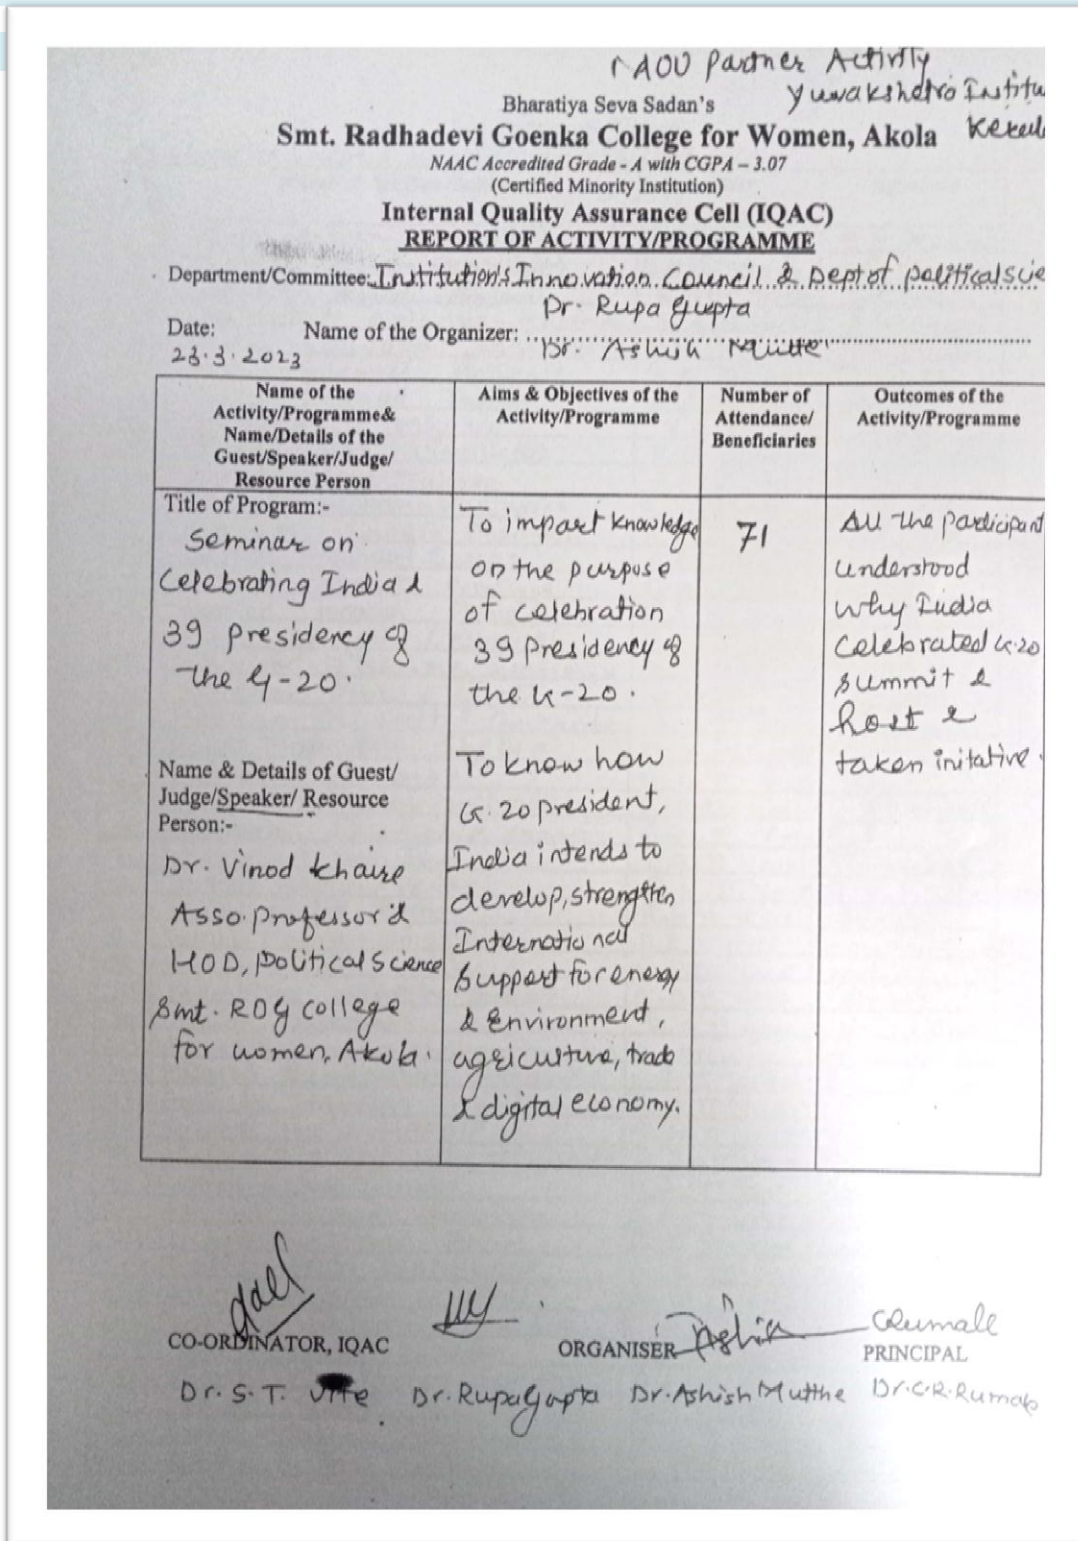 MOU Partner Activity
Yuvakshetra Institu
Keral
Bharatiya Seva Sadan's
Smt. Radhadevi Goenka College for Women, Akola
NAAC Accredited Grade - A with CGPA – 3.07
(Certified Minority Institution)
Internal Quality Assurance Cell (IQAC)
REPORT OF ACTIVITY/PROGRAMME
Department/Committee: Institution's Innovation Council & Dept of political scie
Dr. Rupa Gupta
Date: Name of the Organizer:
Dr. Ashish
23.3.2023
Name of the
Activity/Programme&
Name/Details of the
Guest/Speaker/Judge/
Resource Person
Aims & Objectives of the
Activity/Programme
Number of
Attendance/
Beneficiaries
Outcomes of the
Activity/Programme
Title of Program:-
Seminar on
Celebrating India &
39 presidency of
the G-20.
Name & Details of Guest/
Judge/Speaker/ Resource
Person:-
Dr. Vinod Khaire
Asso. professor &
HOD, political Science
Smt. RDG College
for women, Akola.
To impart knowledge
on the purpose
of celebration
39 presidency of
the G-20.
To know how
G.20 president,
India intends to
develop, strengthen
International
support for energy
& Environment,
agriculture, trade
& digital economy.
71
All the participant
understood
why India
celebrated G.20
summit &
host &
taken initative.
CO-ORDINATOR, IQAC
ORGANISER
PRINCIPAL
Dr. S. T. Dr. Rupa Gupta Dr. Ashish Mutthe Dr. C. R. Rumale